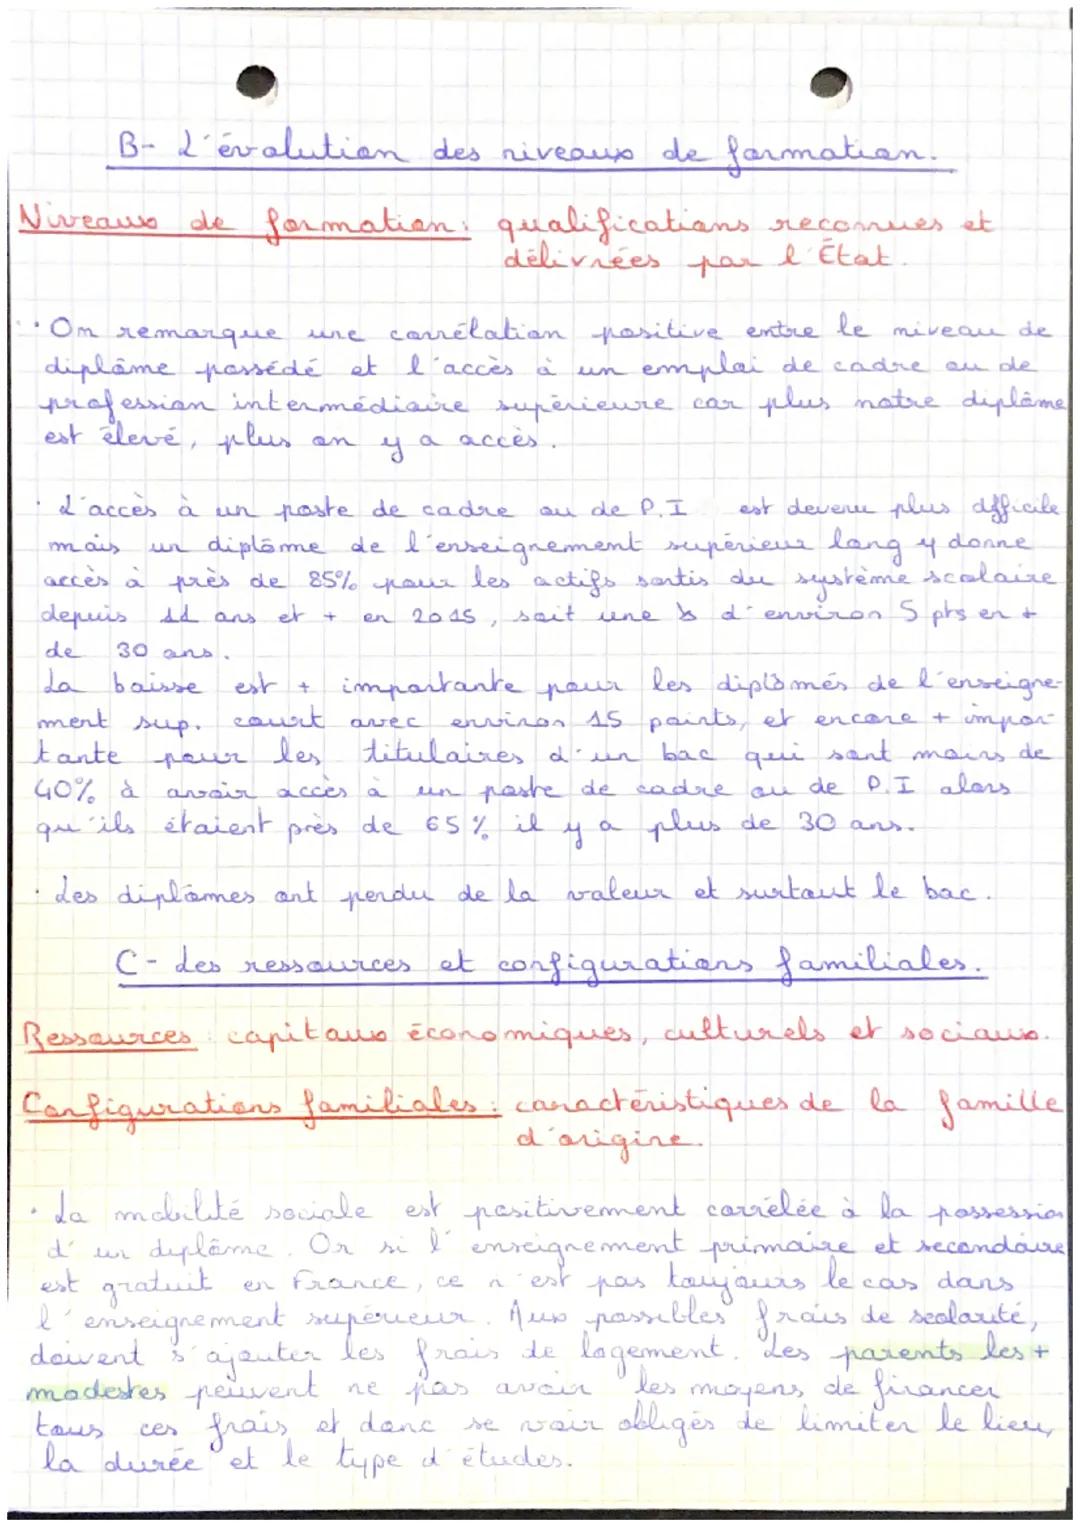 B- L'évolution des niveaux de formation.
Niveaux de formation : qualifications reconnues et
délivrées par l'État.
• On remarque une corrélation positive entre le niveau de
diplôme possédé et l'accès à un emploi de cadre ou de
profession intermédiaire supérieure car plus notre diplôme
est élevé, plus on y a accès.
• L'accès à un poste de cadre ou de P.I est devenu plus difficile
mais un diplôme de l'enseignement supérieur long y donne
accès à près de 85% pour les actifs sortis du système scolaire
depuis 11 ans et + en 2015, soit une ↘ d'environ 5 pts en +
de 30 ans.
La baisse est + importante pour les diplômés de l'enseigne-
ment sup. court avec environ 15 points, et encore + impor-
tante pour les titulaires d'un bac qui sont moins de
40% à avoir accès à un poste de cadre ou de P.I alors
qu'ils étaient près de 65% il y a plus de 30 ans.
• Les diplômes ont perdu de la valeur et surtout le bac.
C- Les ressources et configurations familiales.
Ressources : capitaux économiques, culturels et sociaux.
Configurations familiales : caractéristiques de la famille
d'origine.
• La mobilité sociale est positivement corrélée à la possession
d'un diplôme. Or si l'enseignement primaire et secondaire
est gratuit en France, ce n'est pas toujours le cas dans
l'enseignement supérieur. Aux possibles frais de scolarité,
doivent s'ajouter les frais de logement. Les parents les +
modestes peuvent ne pas avoir les moyens de financer
tous ces frais et donc se voir obligés de limiter le lieu,
la durée et le type d'études.